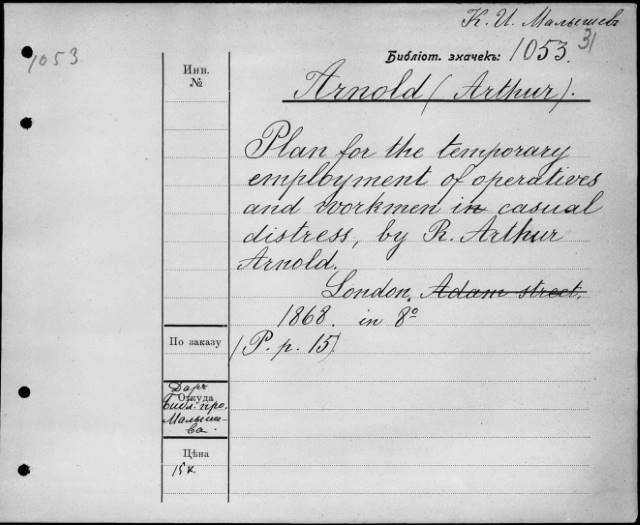 К. И. Малышевъ
1053
Библіот. значекъ: 1053. 31
Инв.
№
Arnold (Arthur).
Plan for the temporary
employment of operatives
and workmen in casual
distress, by R. Arthur
Arnold.
London. Adam street.
1868. in 8º
По заказу
(P. p. 15)
Даръ
Откуда
Библ. про.
Малыше-
ва.
Цѣна
15 к